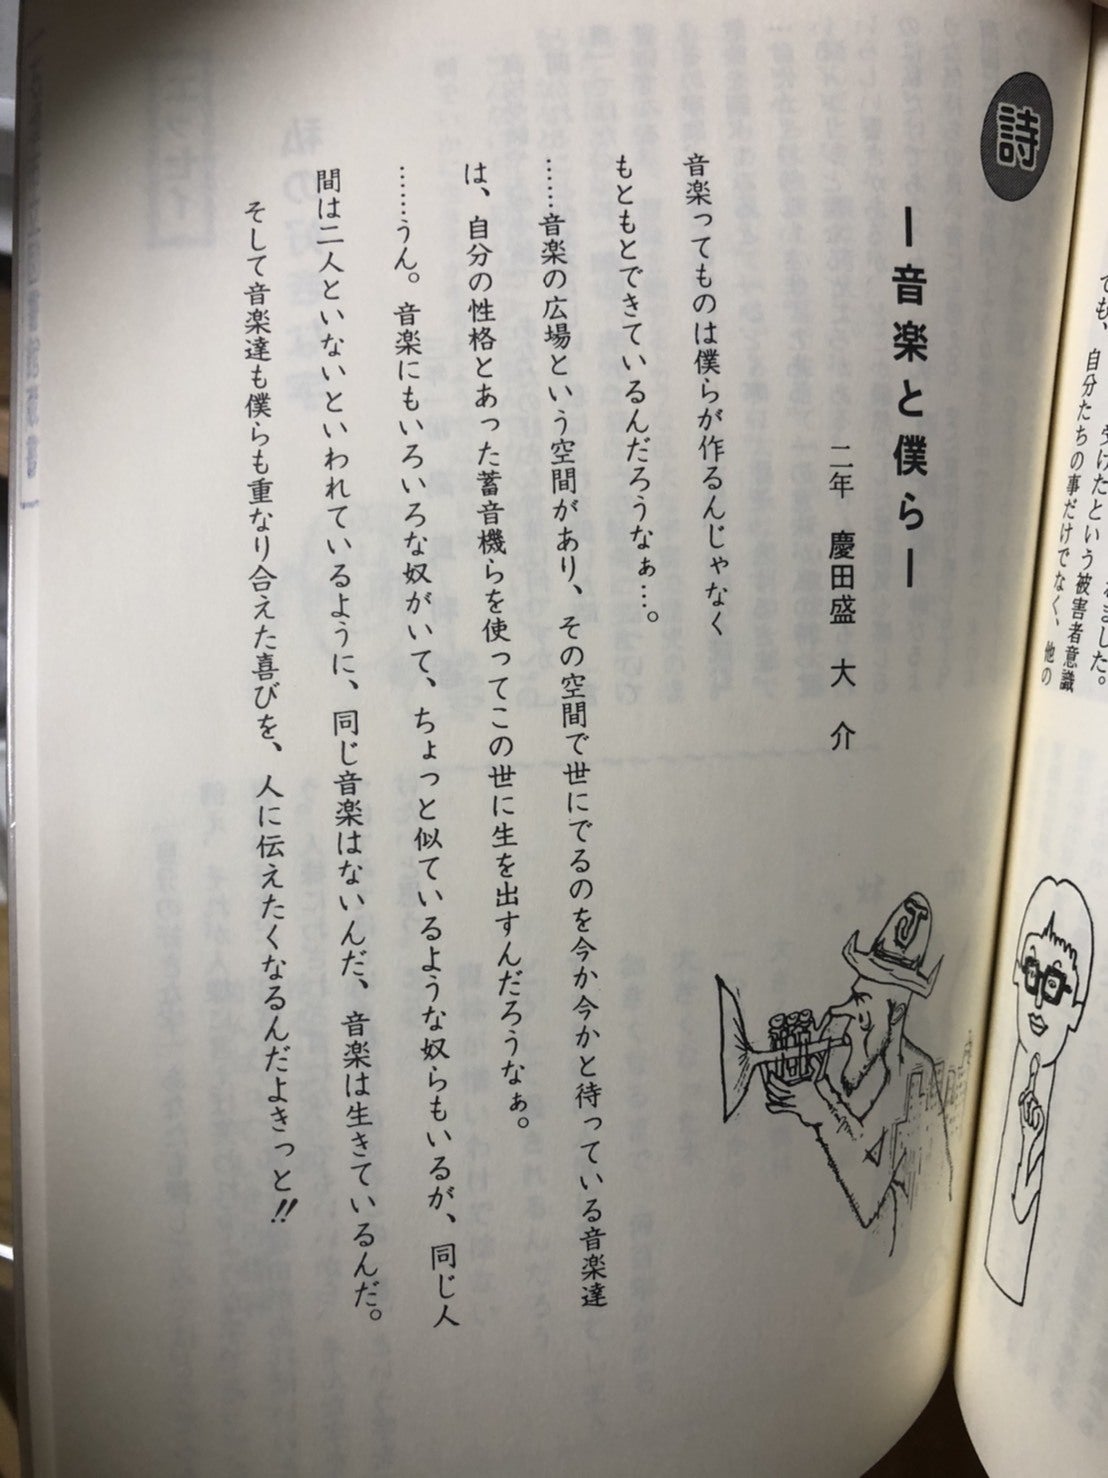 詩
―音楽と僕ら―
二年　慶田盛　大　介
音楽ってものは僕らが作るんじゃなく
もともとできているんだろうなぁ…。
……音楽の広場という空間があり、その空間で世にでるのを今か今かと待っている音楽達
は、自分の性格とあった蓄音機らを使ってこの世に生を出すんだろうなぁ。
……うん。音楽にもいろいろな奴がいて、ちょっと似ているような奴らもいるが、同じ人
間は二人といないといわれているように、同じ音楽はないんだ、音楽は生きているんだ。
そして音楽達も僕らも重なり合えた喜びを、人に伝えたくなるんだよきっと!!
J
受けたという被害者意識
でも、自分たちの事だけでなく、他の
ました。